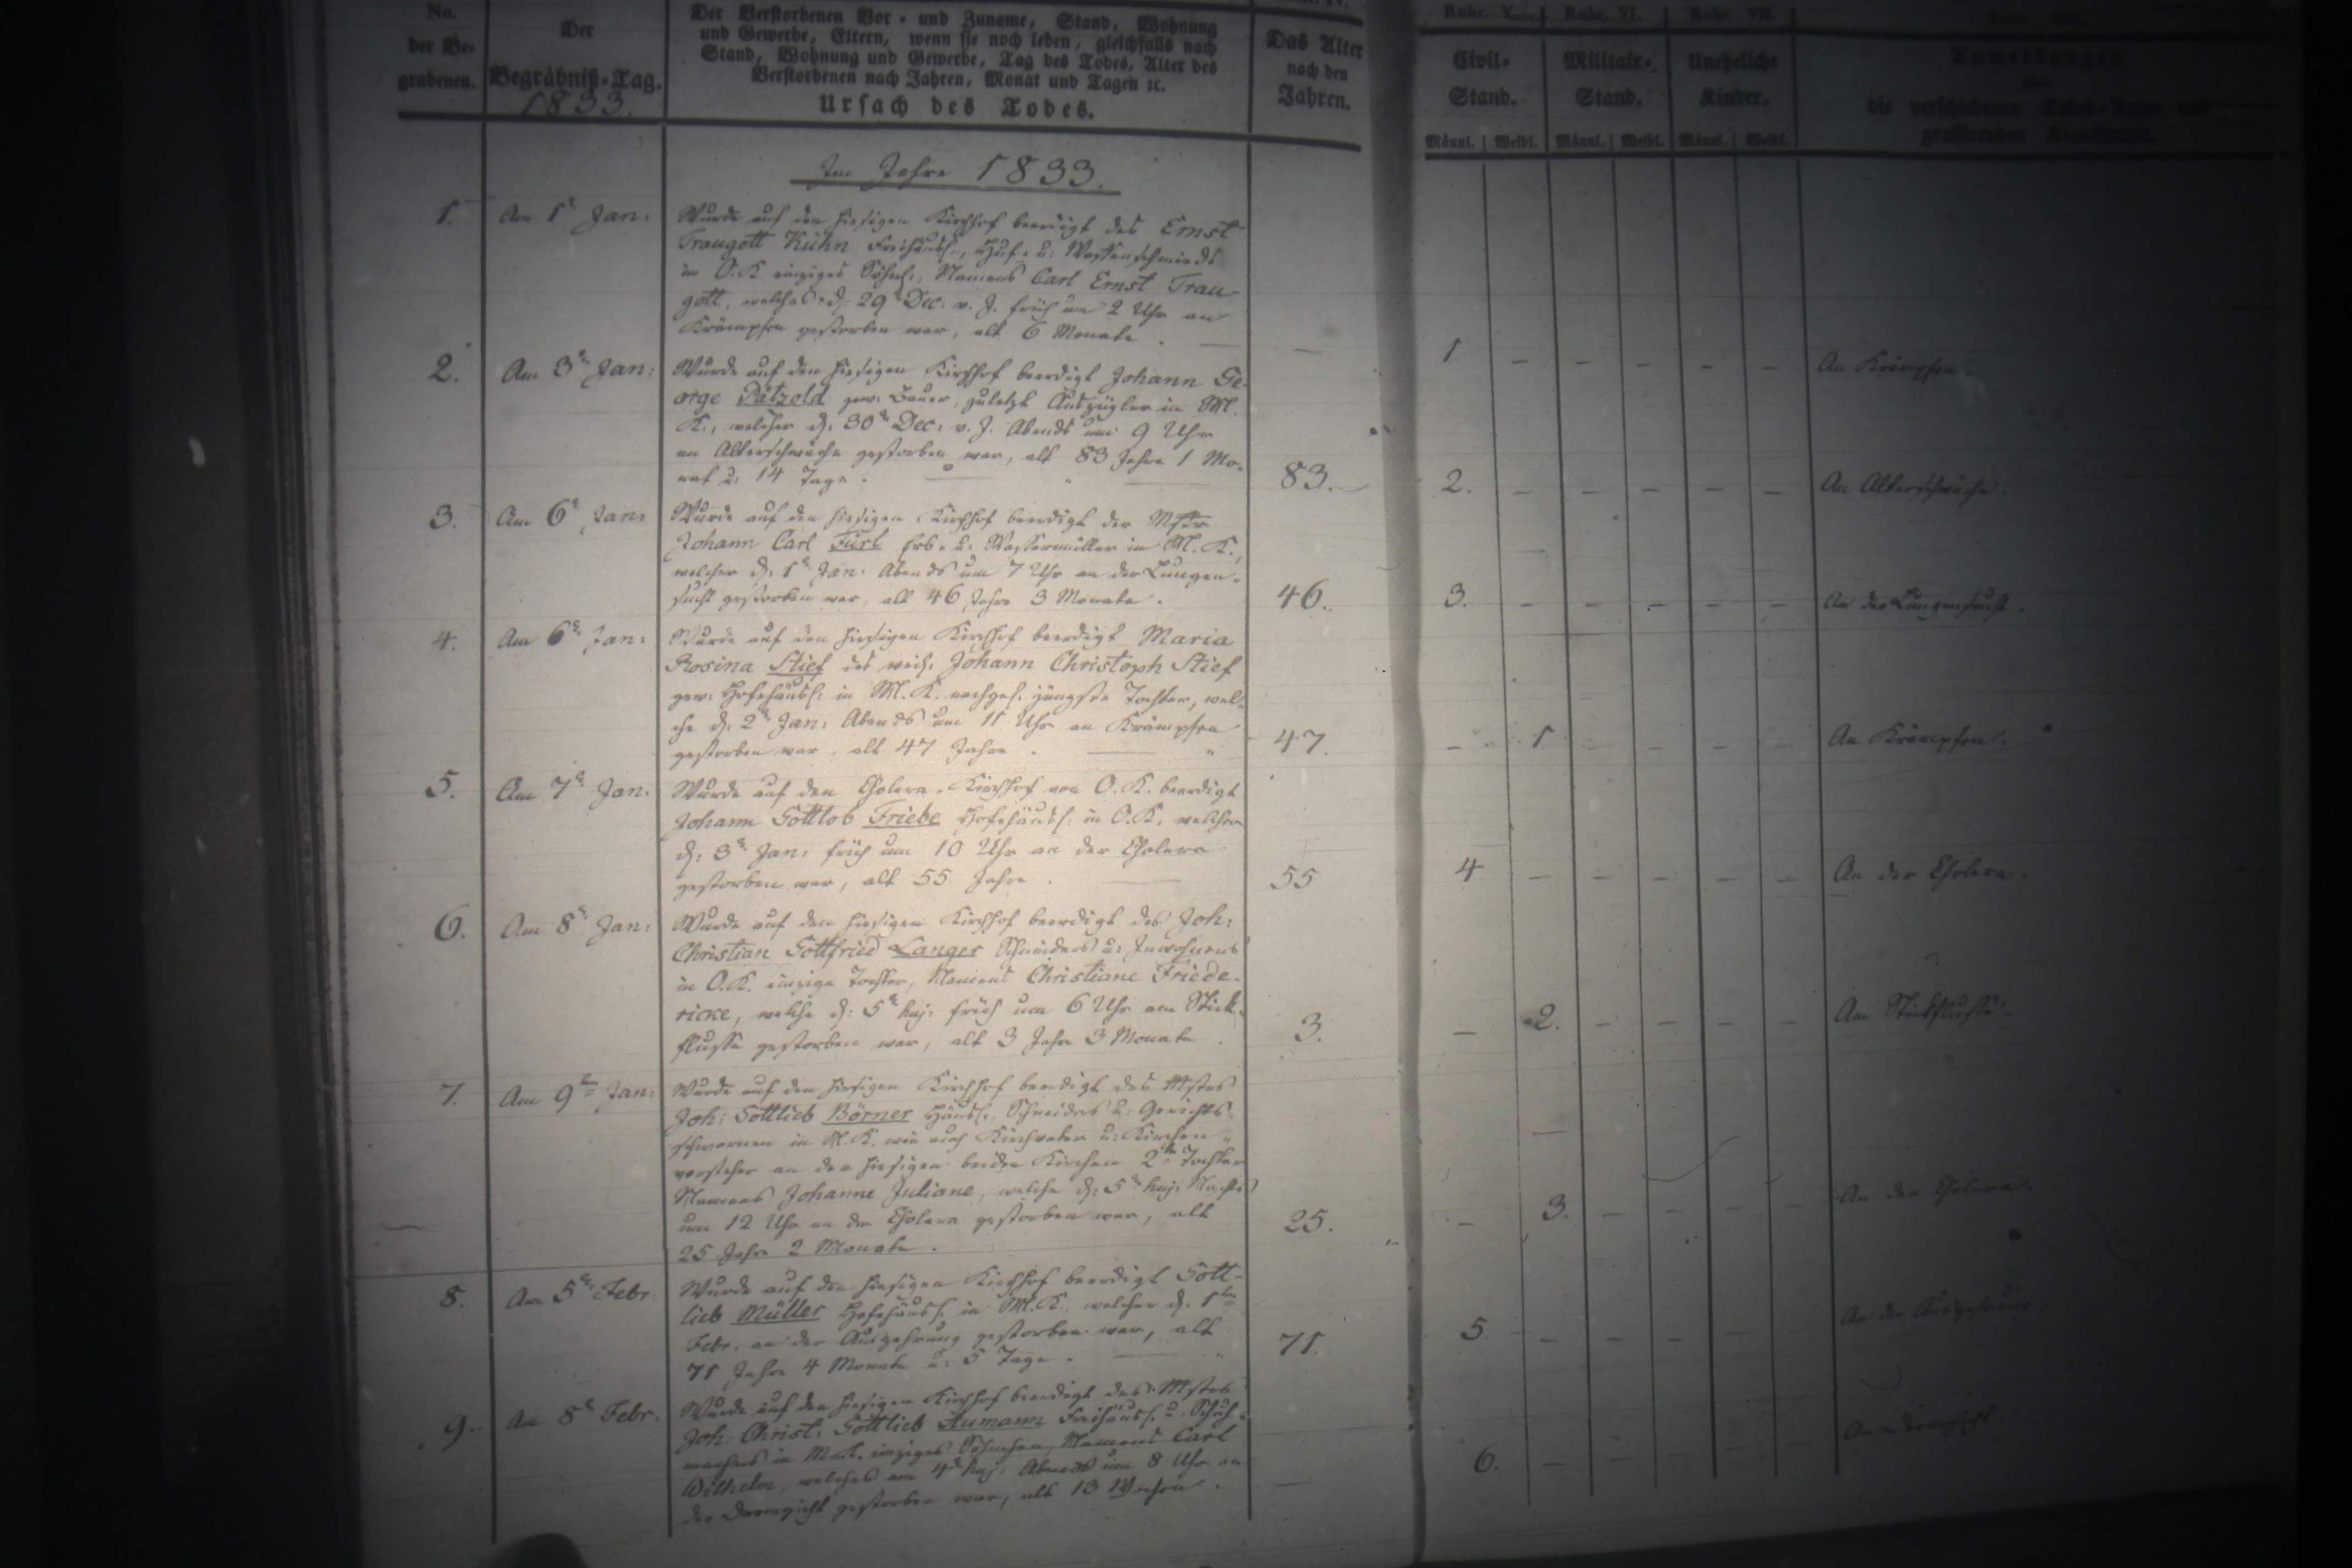 No.
der Be-
grabenen.
Der
Begräbniß-Tag.
1833.
Der Verstorbenen Vor- und Zuname, Stand, Wohnung
und Gewerbe, Eltern, wenn sie noch leben, gleichfalls nach
Stand, Wohnung und Gewerbe, Tag des Todes, Alter des
Verstorbenen nach Jahren, Monat und Tagen ꝛc.
Ursach des Todes.
Das Alter
nach den
Jahren.
Rubr. V. Rubr. VI. Rubr. VII.
Civil-
Stand.
Militair-
Stand.
Uneheliche
Kinder.
Anmerkungen
die verschiedenen Todes-Arten und
grassirenden Krankheiten.
Männl. Weibl. Männl. Weibl. Männl. Weibl.
Im Jahre 1833.
1. Am 1t Jan:
Wurde auf den hiesigen Kirchhof beerdigt des Ernst
Traugott Kühn Freihäusl., Huf- u: Waffenschmieds
in O.K. einziges Söhnl., Namens Carl Ernst Trau-
gott, welches d: 29t Dec: v. J. früh um 2 Uhr an
Krämpfen gestorben war, alt 6 Monate.
— 1. — — — — — An Krämpfen.
2. Am 3t Jan:
Wurde auf den hiesigen Kirchhof beerdigt Johann Ge-
orge Pätzold gew. Bauer, zuletzt Auszügler in M.
K., welcher d: 30t Dec: v. J. Abends um 9 Uhr
an Altersschwäche gestorben war, alt 83 Jahre 1 Mo-
nat u: 14 Tage.
83. 2. — — — — — An Altersschwäche.
3. Am 6t Jan:
Wurde auf den hiesigen Kirchhof beerdigt der Mstr
Johann Carl Fürl Erb- u. Wassermüller in M. K.,
welcher d: 1t Jan: Abends um 7 Uhr an der Lungen-
sucht gestorben war, alt 46 Jahre 3 Monate.
46. 3. — — — — — An der Lungensucht.
4. Am 6t Jan:
Wurde auf den hiesigen Kirchhof beerdigt Maria
Rosina Stief des weil. Johann Christoph Stief
gew: Hofehäusl: in M. K. nachgel. jüngste Tochter, wel-
che d: 2t Jan: Abends um 11 Uhr an Krämpfen
gestorben war, alt 47 Jahre.
47. — 1 — — — — An Krämpfen.
5. Am 7t Jan:
Wurde auf den Cholera-Kirchhof von O.K. beerdigt
Johann Gottlob Friebe Hofehäusl: in O.K. welcher
d: 3t Jan: früh um 10 Uhr an der Cholera
gestorben war, alt 55 Jahre.
55 4 — — — — — An der Cholera.
6. Am 8t Jan:
Wurde auf den hiesigen Kirchhof beerdigt des Joh:
Christian Gottfried Langer Schneiders u: Inwohners
in O.K. einzige Tochter, Namens Christiane Friede-
ricke, welche d: 5t huj: früh um 6 Uhr am Stick-
flusse gestorben war, alt 3 Jahre 3 Monate.
3. — 2. — — — — Am Stickflusse.
7. Am 9ten Jan:
Wurde auf den hiesigen Kirchhof beerdigt des Mstrs
Joh: Gottlieb Börner Häusl., Schneiders u: Gerichts-
schwornen in M. K. wie auch Kirchvater u: Kirchen-
vorsteher an den hiesigen beiden Kirchen 2te Tochter
Namens Johanne Juliane, welche d: 5t huj: Nachts
um 12 Uhr an der Cholera gestorben war, alt
25 Jahre 2 Monate.
25. — 3. — — — — An der Cholera.
8. Am 5t Febr
Wurde auf den hiesigen Kirchhof beerdigt Gott-
lieb Müller Hofehäusl. in M. K., welcher d. 1ten
Febr. an der Auszehrung gestorben war, alt
71 Jahre 4 Monate u: 5 Tage.
71. 5 — — — — — An der Auszehrung
9. Am 8t Febr.
Wurde auf den hiesigen Kirchhof beerdigt des Mstrs
Joh: Christ: Gottlieb Aumann Freihäusl. u. Schuh-
machers in M.K. einziges Söhnchen, Namens Carl
Wilhelm, welches am 4t huj: Abends um 8 Uhr an
der Darmgicht gestorben war, alt 13 Wochen.
— 6. — — — — — An Darmgicht.